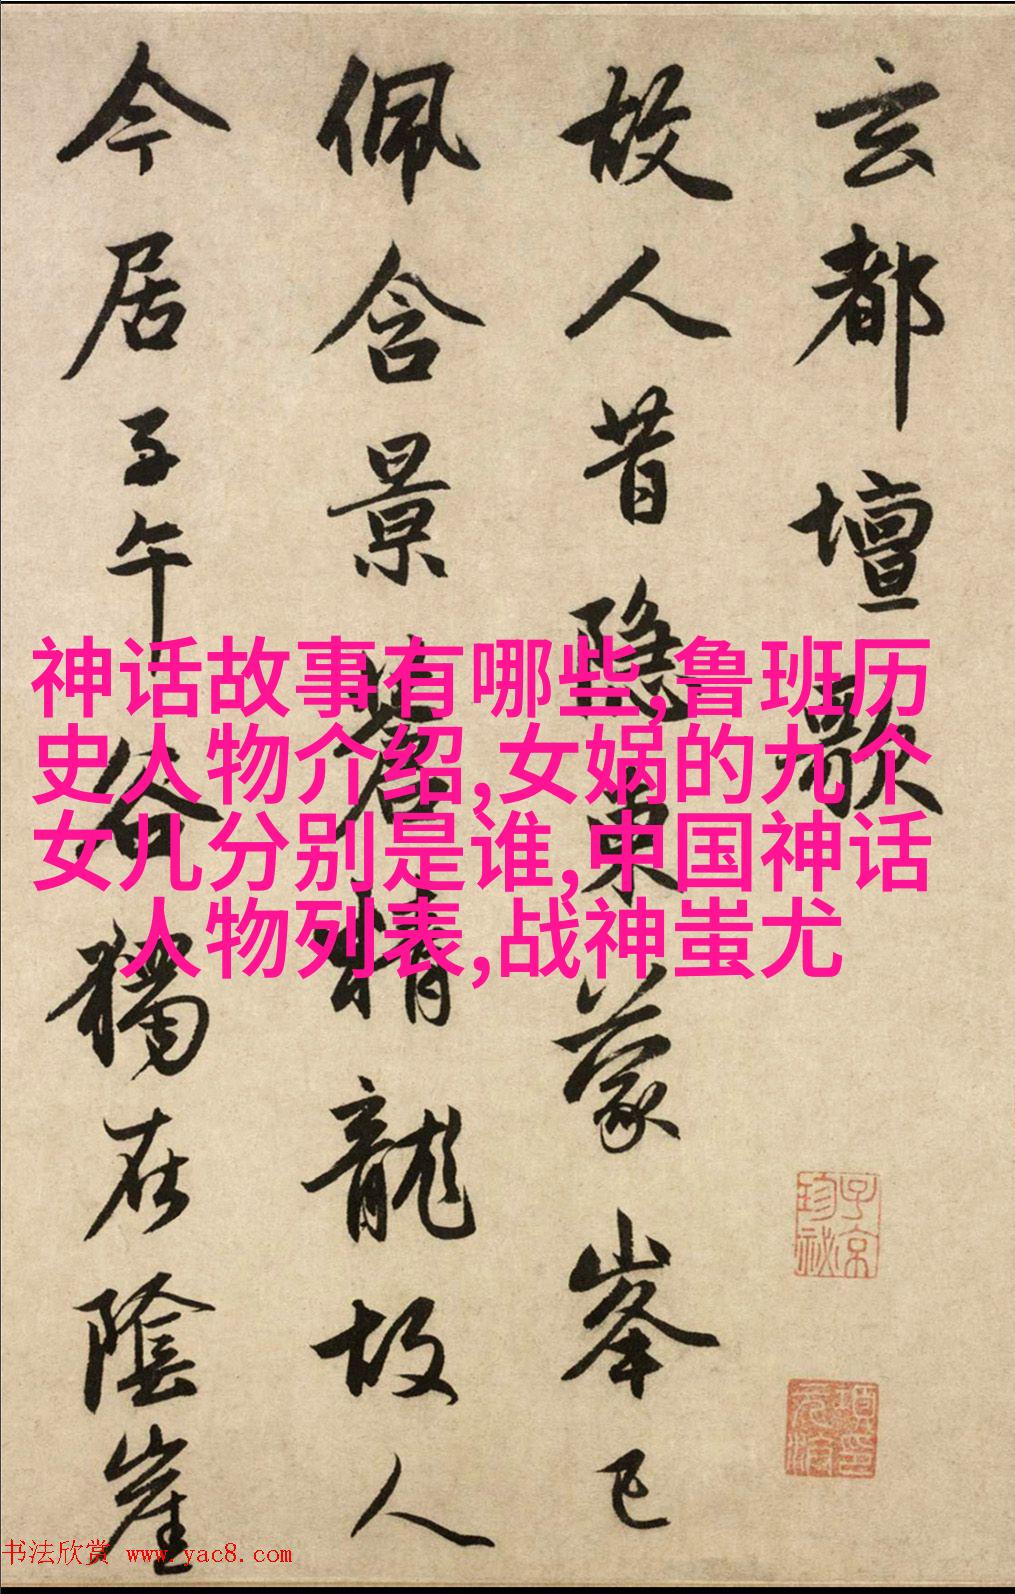 玄都壇歌
故人昔隱東蒙峯已
佩含景蒼精龍故人
今居子午谷獨在陰崖
神话故事有哪些,鲁班历
史人物介绍,女娲的九个
女儿分别是谁,中国神话
人物列表,战神蚩尤
子京
珍祕
书法欣赏 www.yac8.com